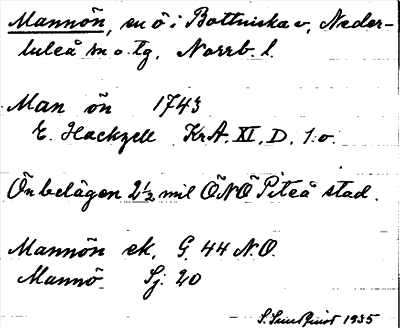 Mannön, en ö i Bottniska v, Neder-
luleå sn o. tg, Norrb. l.
Man ön 1743
E. Hackzell KrA. XI, D, 1:o.
Ön belägen 2½ mil ÖNÖ Piteå stad.
Mannön ek, G. 44 N.O.
Mannö Sj: 20
S. 1935